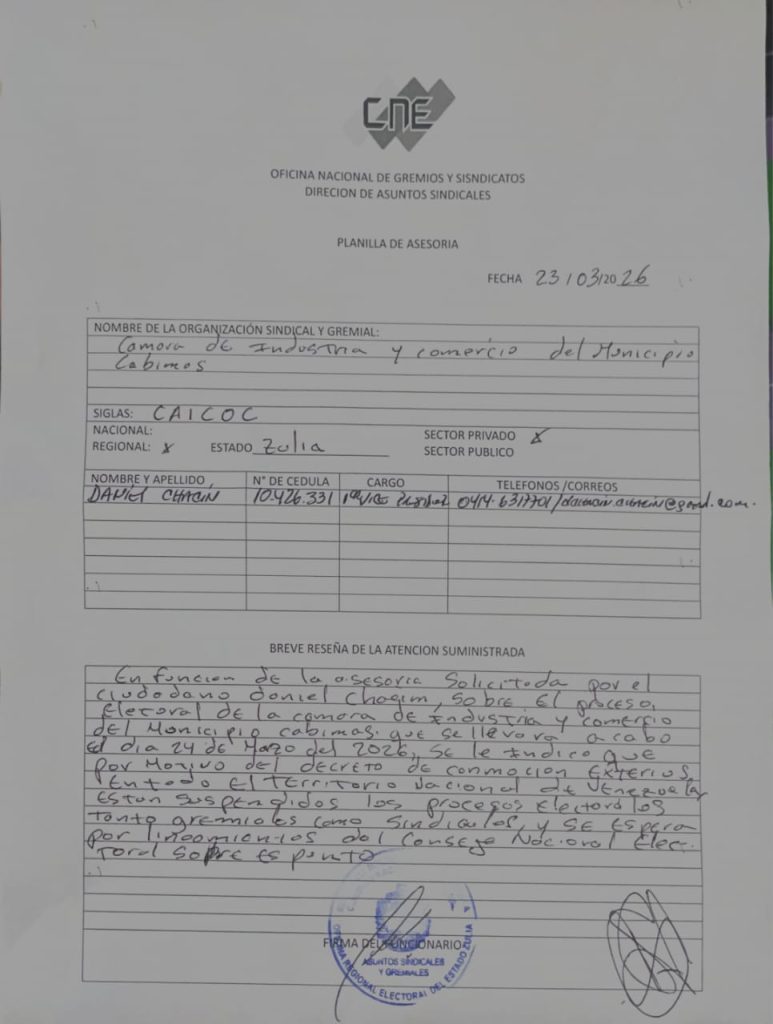 CNE
OFICINA NACIONAL DE GREMIOS Y SISNDICATOS
DIRECION DE ASUNTOS SINDICALES
PLANILLA DE ASESORIA
FECHA 23/03/2026
NOMBRE DE LA ORGANIZACIÓN SINDICAL Y GREMIAL:
Camara de Industria y comercio del Municipio
Cabimas
SIGLAS: CAICOC
NACIONAL:
REGIONAL: x ESTADO Zulia
SECTOR PRIVADO x
SECTOR PUBLICO
NOMBRE Y APELLIDO N° DE CEDULA CARGO TELEFONOS /CORREOS
DANIEL CHACIN 10.426.331 1er Vice
BREVE RESEÑA DE LA ATENCION SUMINISTRADA
En funcion de la asesoria Solicitada por el
ciudadano daniel Chacin, sobre El proceso
Electoral de la camara de Industria y comercio
del Municipio cabimas. que se llevara a cabo
El dia 24 de Marzo del 2026, se le Indico que
por Motivo del decreto de conmocion Exterior,
En todo El Territorio Nacional de Venezuela
Estan suspendidos los procesos Electorales
tanto gremiales como sindicales, y se Espera
por lineamientos del Consejo Nacional Elec-
toral sobre Es punto
FIRMA DEL FUNCIONARIO
ASUNTOS SINDICALES
Y GREMIALES
OFICINA REGIONAL ELECTORAL DEL ESTADO ZULIA